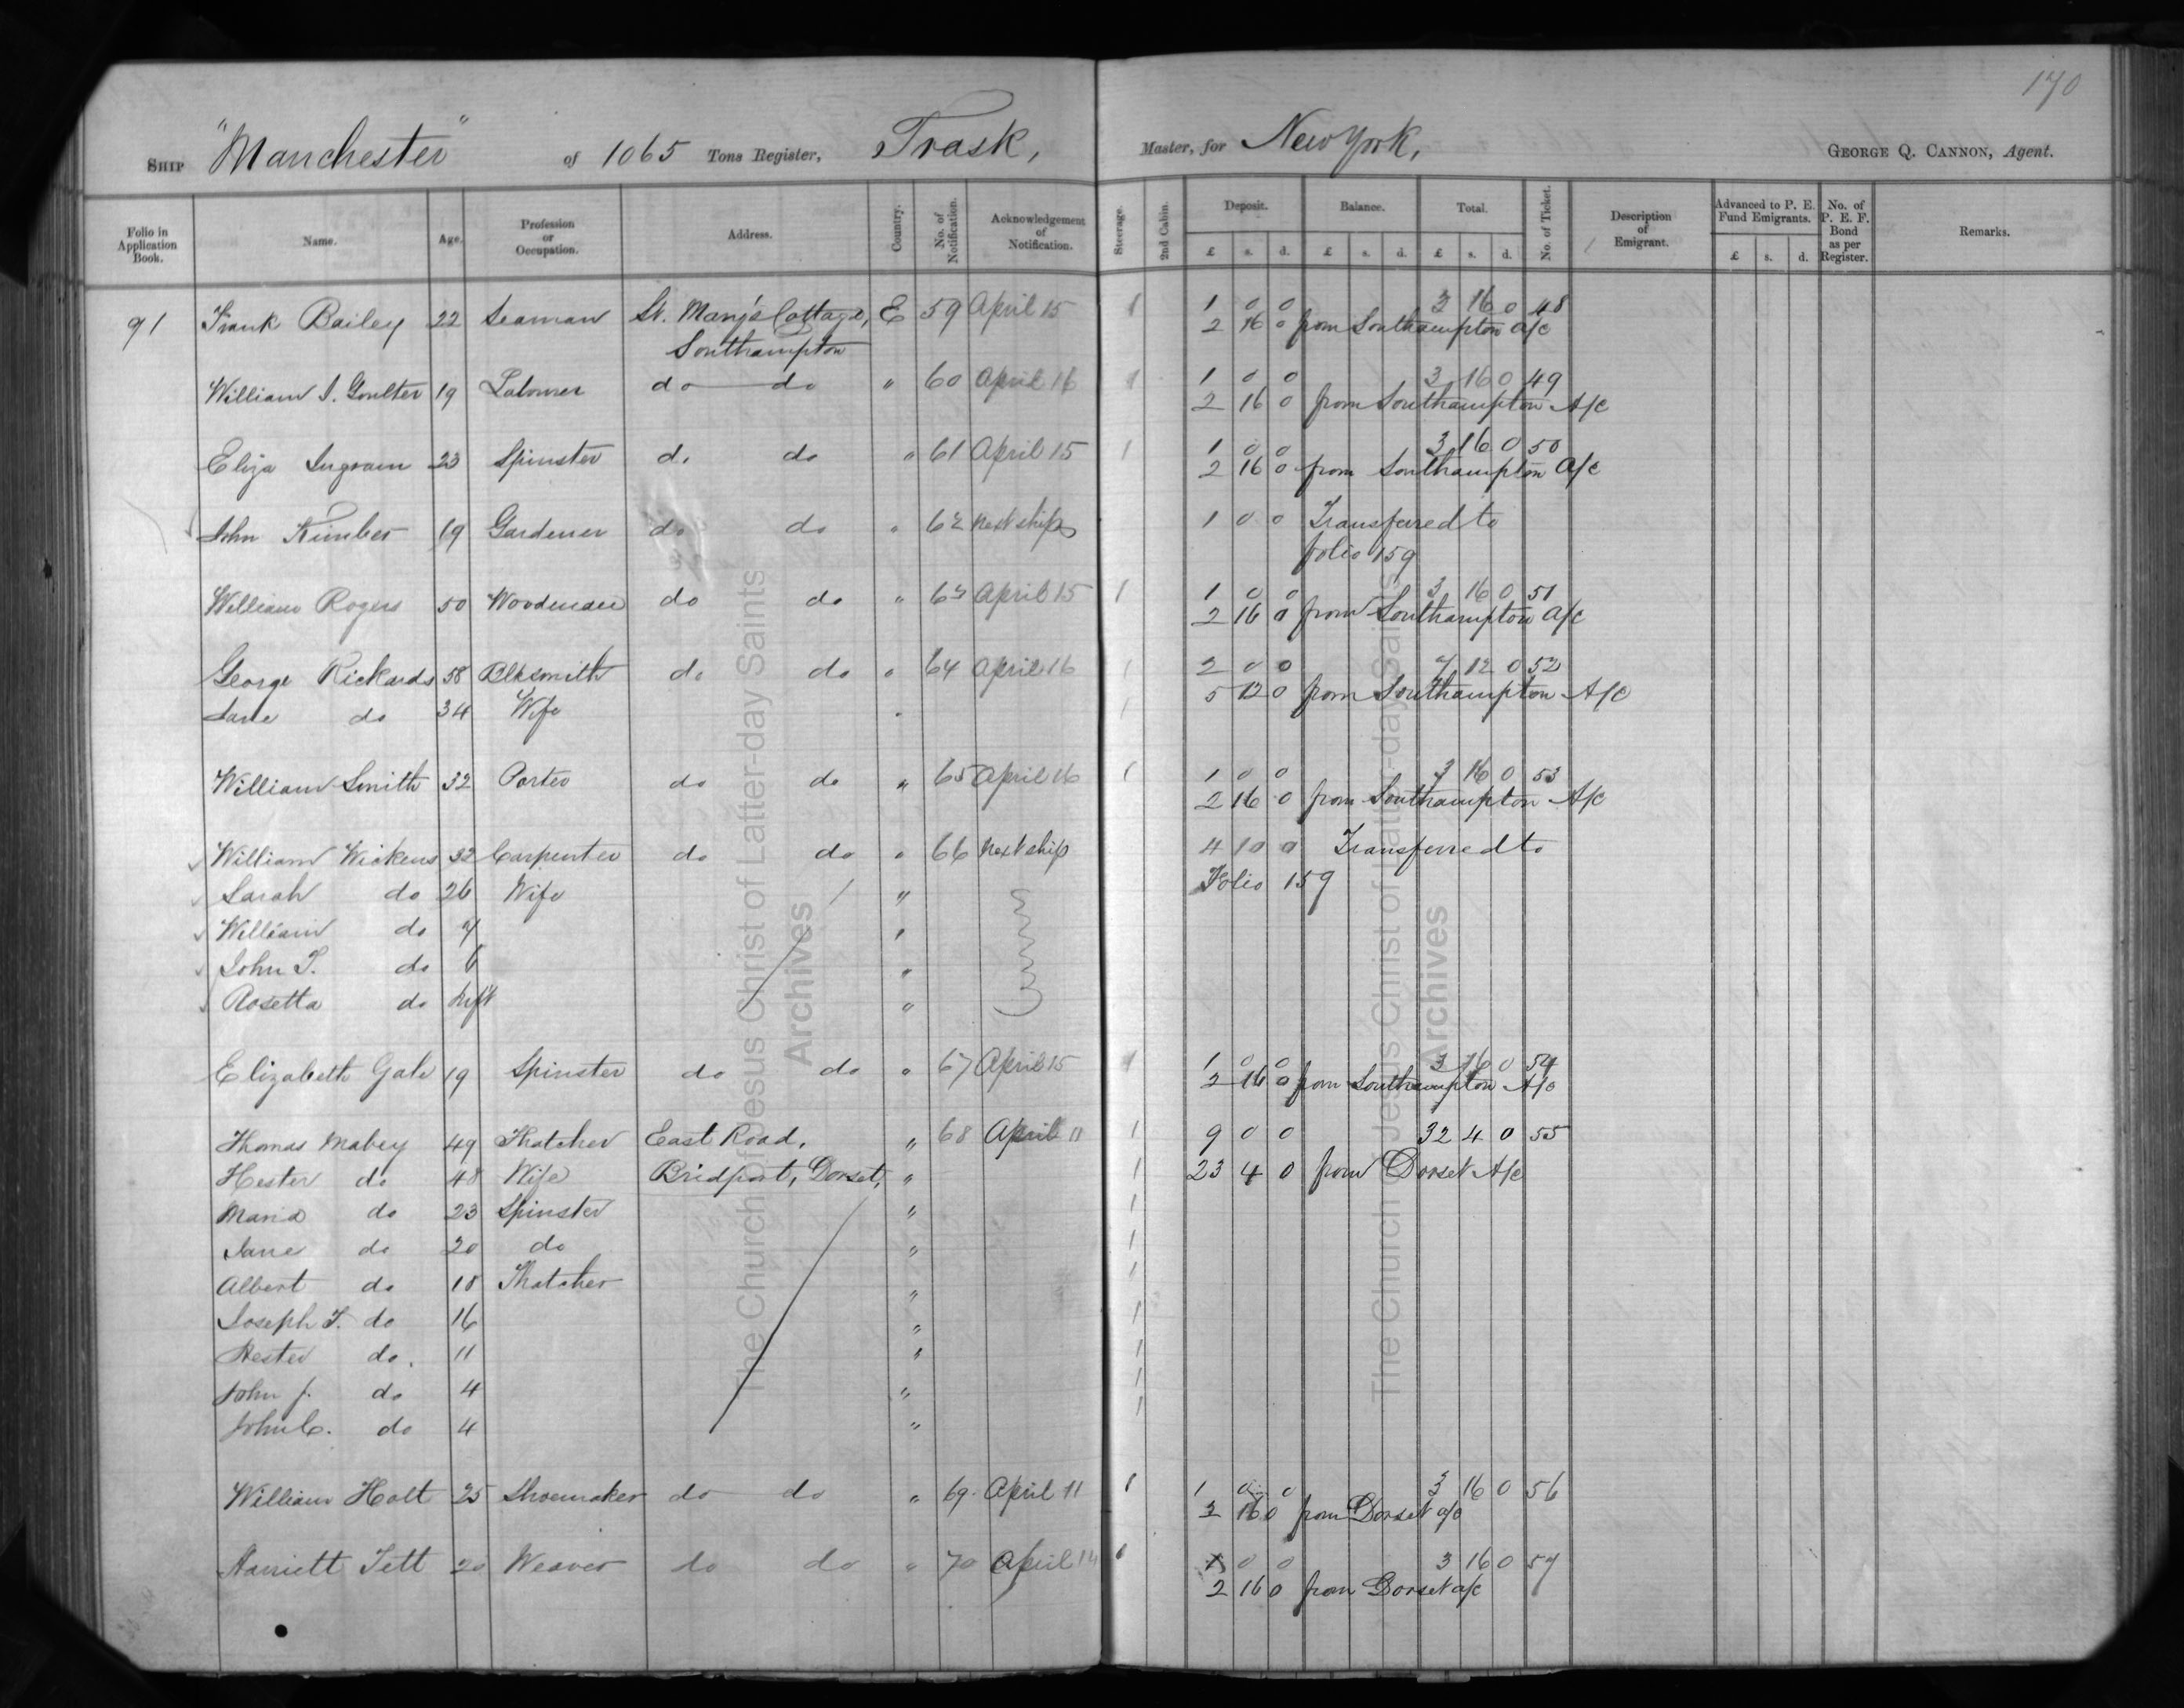 170
Ship "Manchester" of 1065 Tons Register, Trask, Master, for New York, George Q. Cannon, Agent.
Folio in Application Book. Name. Age. Profession or Occupation. Address. Country. No. of Notification. Acknowledgement of Notification. Steerage. 2nd Cabin. Deposit. £ s. d. Balance. £ s. d. Total. £ s. d. No. of Ticket. Description of Emigrant. Advanced to P. E. Fund Emigrants. £ s. d. No. of P. E. F. Bond as per Register. Remarks.
91 Frank Bailey 22 Seaman St. Mary's Cottage, E 59 April 15 1 1 0 0 3 16 0 48
Southampton 2 16 0 from Southampton a/c
William J. Goulter 19 Labourer do do " 60 April 16 1 1 0 0 3 16 0 49
2 16 0 from Southampton A/c
Eliza Ingram 23 Spinster do do " 61 April 15 1 1 0 0 3 16 0 50
2 16 0 from Southampton a/c
John Kimber 19 Gardener do do " 62 next ship 1 0 0 Transferred to
folio 159
William Rogers 50 Woodman do do " 63 April 15 1 1 0 0 3 16 0 51
2 16 0 from Southampton a/c
George Rickards 58 Blksmith do do " 64 April 16 1 2 0 0 7 12 0 52
Jane do 34 Wife " 1 5 12 0 from Southampton A/c
William Smith 32 Porter do do " 65 April 16 1 1 0 0 3 16 0 53
2 16 0 from Southampton A/c
William Wickens 32 Carpenter do do " 66 Next ship 4 10 0 Transferred to
Sarah do 26 Wife " Folio 159
William do 7 "
John T. do 6 "
Rosetta do Inft "
Elizabeth Gale 19 Spinster do do " 67 April 15 1 1 0 0 3 16 0 54
2 16 0 from Southampton A/c
Thomas Mabey 49 Thatcher East Road, " 68 April 11 1 9 0 0 32 4 0 55
Hester do 48 Wife Bridport, Dorset, " 1 23 4 0 from Dorset A/c
Maria do 23 Spinster " 1
Jane do 20 do " 1
Albert do 18 Thatcher " 1
Joseph T. do 16 " 1
Hester do. 11 " 1
John J. do 4 " 1
John C. do 4 " 1
William Holt 25 Shoemaker do do " 69 April 11 1 1 0 0 3 16 0 56
2 16 0 from Dorset a/c
Harriett Tett 20 Weaver do do " 70 April 14 1 1 0 0 3 16 0 57
2 16 0 from Dorset a/c
The Church of Jesus Christ of Latter-day Saints
Archives
The Church of Jesus Christ of Latter-day Saints
Archives